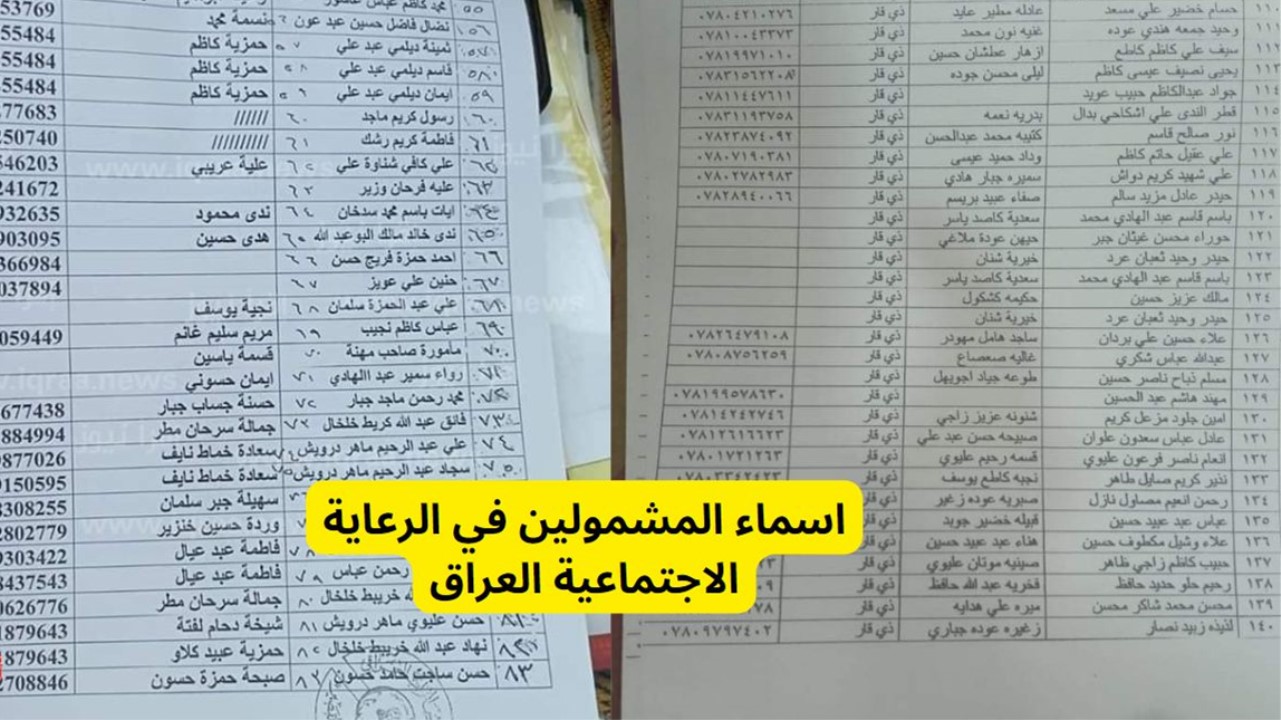 حسام خضير علي مسعد عادله مطير عايد ذي قار ٠٧٨٠٤٢١٠٢٧٦
١١١ وحيد جمعه هندي عوده غنيه نون محمد ذي قار ٠٧٨١٠٠٤٣٣٧٣
سيف علي كاظم كاطع ازهار عطشان حسين ذي قار ٠٧٨١٩٩٧١٠١٠
١١٣ يحيى نصيف عيسى كاظم ليلى محسن جوده ذي قار ٠٧٨٣١٥٦٢٢٠٨
١١٤ جواد عبدالكاظم حبيب عويد ذي قار ٠٧٨١١٤٤٧٦١١
١١٥ قطر الندى علي اشكاحي بدال بدريه نعمه ذي قار ٠٧٨٣١١٩٣٧٥٨
١١٦ نور صالح قاسم كتيبه محمد عبدالحسن ذي قار ٠٧٨٢٣٨٧٤٠٩٢
١١٧ علي عقيل حاتم كاظم وداد حميد عيسى ذي قار ٠٧٨٠٧١٩٠٣٨١
١١٨ علي شهيد كريم دواش سميره جبار هادي ذي قار ٠٧٨٠٢٧٨٢٩٨٣
١١٩ حيدر عادل مزيد سالم صفاء عبيد بريسم ذي قار ٠٧٨٢٨٩٤٠٠٦٦
١٢٠ باسم قاسم عبد الهادي محمد سعدية كاصد ياسر ذي قار
١٢١ حوراء محسن غيثان جبر جيهن عودة ملاغي ذي قار
١٢٢ حيدر وحيد ثعبان عرد خيرية شنان ذي قار
١٢٣ باسم قاسم عبد الهادي محمد سعدية كاصد ياسر ذي قار
١٢٤ مالك عزيز حسين حكيمه كشكول ذي قار
١٢٥ حيدر وحيد ثعبان عرد خيرية شنان ذي قار
١٢٦ علاء حسين علي بردان ساجد هامل مهودر ذي قار ٠٧٨٢٦٤٧٩١٠٨
١٢٧ عبدالله عباس شكري غاليه صعصاع ذي قار ٠٧٨٠٨٧٥٦٢٥٩
١٢٨ مسلم ذباح ناصر حسين طوعه جياد اجويهل ذي قار
١٢٩ مهند هاشم عبد الحسين ذي قار ٠٧٨١٩٩٥٧٨٦٣٠
١٣٠ امين جلود مزعل كريم شنونه عزيز زاجي ذي قار ٠٧٨١٤٢٤٢٧٤٦
١٣١ عادل عباس سعدون علوان صبيحه حسن عبد علي ذي قار ٠٧٨١٢٦١٦٦٢٣
١٣٢ انعام ناصر فرعون عليوي قسمه رحيم عليوي ذي قار ٠٧٨٠١٧٢١٢٦٣
١٣٣ نذير كريم صايل طاهر نجبه كاطع يوسف ذي قار ٠٧٨٠٣٣٤٢٤٢٣
١٣٤ رحمن انعيم مصاول نازل صبريه عوده زغير ذي قار
١٣٥ عباس عبد عبيد حسين قبيله خضير جويد ذي قار
١٣٦ علاء وشيل مكطوف حسين هناء عبد عبيد حسين ذي قار
١٣٧ حبيب كاظم زاجي ظاهر صينيه موتان عليوي ذي قار
١٣٨ رحيم حلو حديد حافظ فخريه عبد الله حافظ ذي قار
١٣٩ محسن محمد شاكر محسن ميره علي هدايه ذي قار
١٤٠ لذيذه زبيد نصار زغيره عوده جباري ذي قار ٠٧٨٠٩٧٩٧٤٠٢
٥٥ محمد كاظم عباس 53769
٥٦ نضال فاضل حسين عبد عون نسمة محمد 55484
٥٧ ثمينة ديلمي عبد علي حمزية كاظم 55484
٥٨ قاسم ديلمي عبد علي حمزية كاظم 55484
٥٩ ايمان ديلمي عبد علي حمزية كاظم 55484
٦٠ رسول كريم ماجد ////// 77683
٦١ فاطمة كريم رشك ////////// 250740
علي كافي شناوة علي علية عريبي 546203
٦٣ عليه فرحان وزير 241672
٦٤ ايات باسم محمد سدخان ندى محمود 932635
٦٥ ندى خالد مالك البوعبد الله هدى حسين 903095
٦٦ احمد حمزة فريج حسن 366984
٦٧ حنين علي عويز 037894
٦٨ علي عبد الحمزة سلمان نجية يوسف
٦٩ عباس كاظم نجيب مريم سليم غانم 059449
٧٠ مامورة صاحب مهنة قسمة ياسين
٧١ رواء سمير عبد االهادي ايمان حسوني
محمد رحمن ماجد جبار حسنة جساب جبار 677438
٧٣ فائق عبد الله كريط خلخال جمالة سرحان مطر 884994
٧٤ علي عبد الرحيم ماهر درويش سعادة خماط نايف 9877026
٧٥ سجاد عبد الرحيم ماهر درويش سعادة خماط نايف 9150595
سهيلة جبر سلمان 8308255
وردة حسين خنزير 2802779
فاطمة عبد عيال 9303422
رحمن عباس فاطمة عبد عيال 8437543
٨٠ خريبط خلخال جمالة سرحان مطر 0626776
٨١ حسن عليوي ماهر درويش شيخة دحام لفتة 1879643
٨٢ نهاد عبد الله خريبط خلخال حمزية عبيد كلاو 1879643
٨٣ حسن ساجت حامد حسون صبحة حمزة حسون 2708846
اسماء المشمولين في الرعاية
الاجتماعية العراق